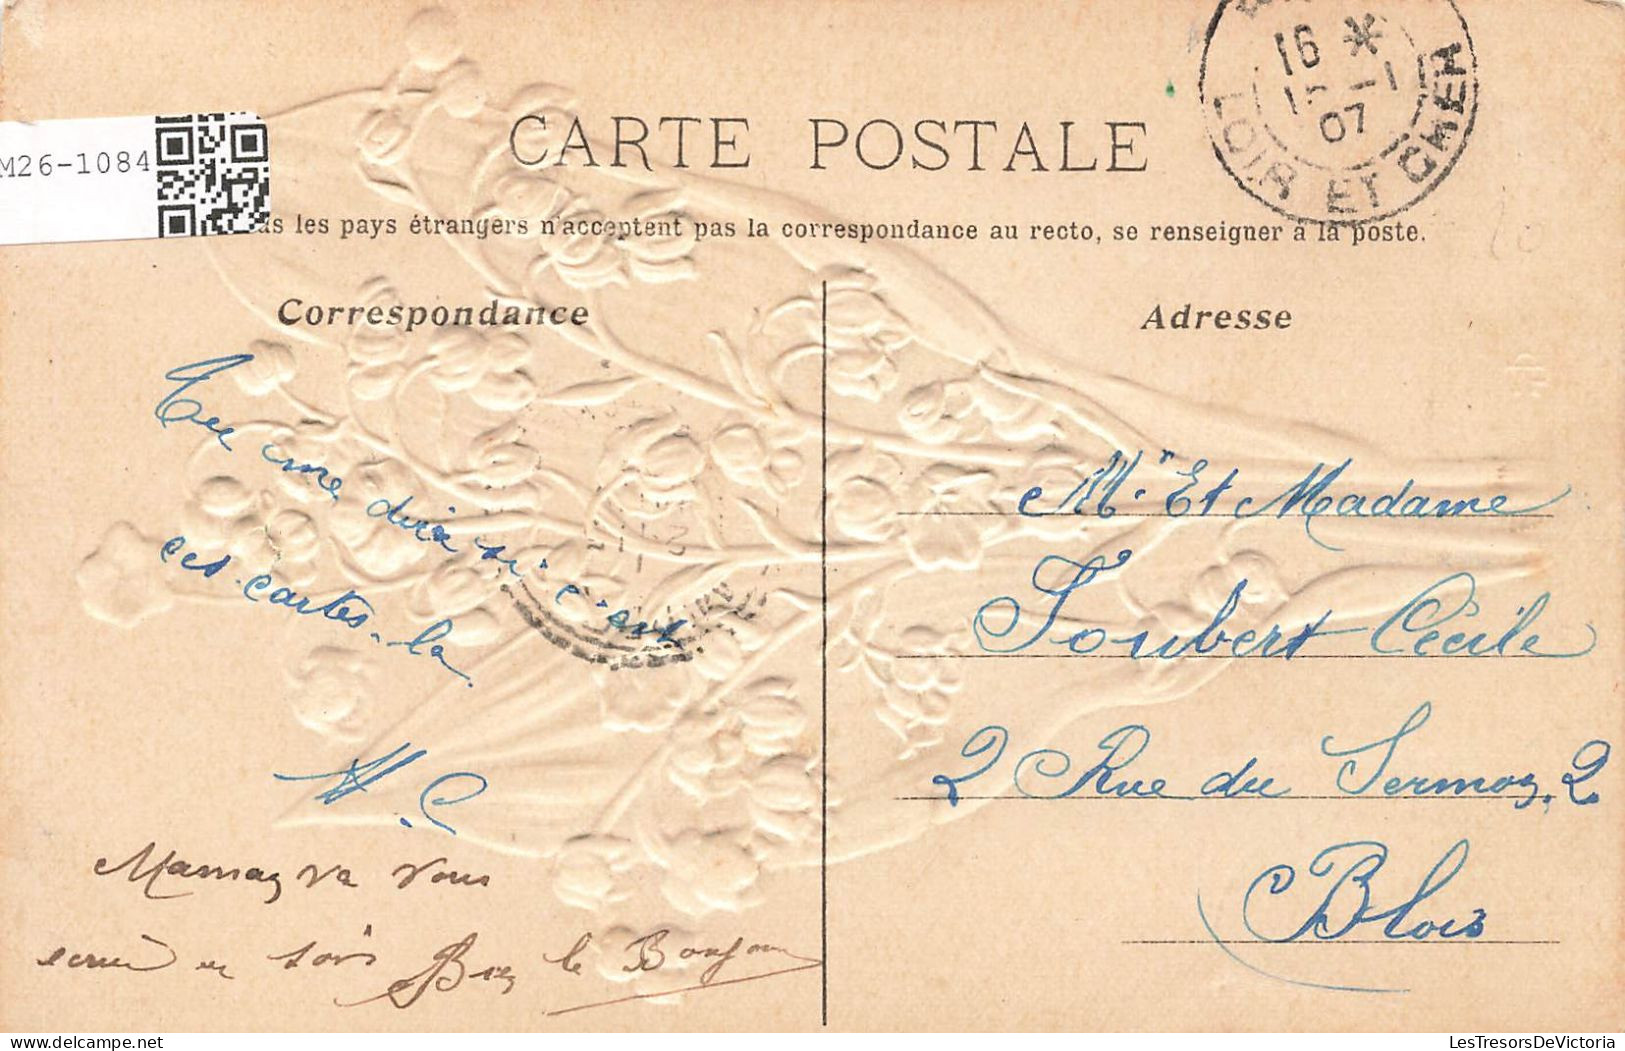 M26-1084
CARTE POSTALE
les pays étrangers n'acceptent pas la correspondance au recto, se renseigner à la poste.
16 *
-1
07
LOIR ET CHER
Correspondance
Adresse
Tu me diras si c'est
ces cartes-la
H. C
Maman va vous
en Bien le Bonjour
Mr Et Madame
Joubert Cécile
2 Rue du Sermon, 2
Blois
LesTresorsDeVictoria